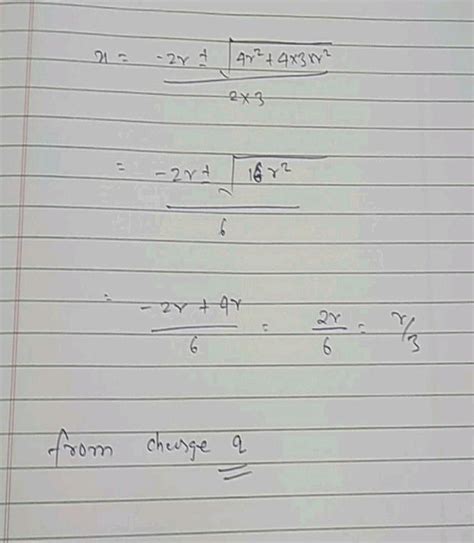 x = -2r ± √4r² + 4×3×r² / 2×3
= -2r ± √16r² / 6
= -2r + 4r / 6 = 2r / 6 = r/3
from charge q